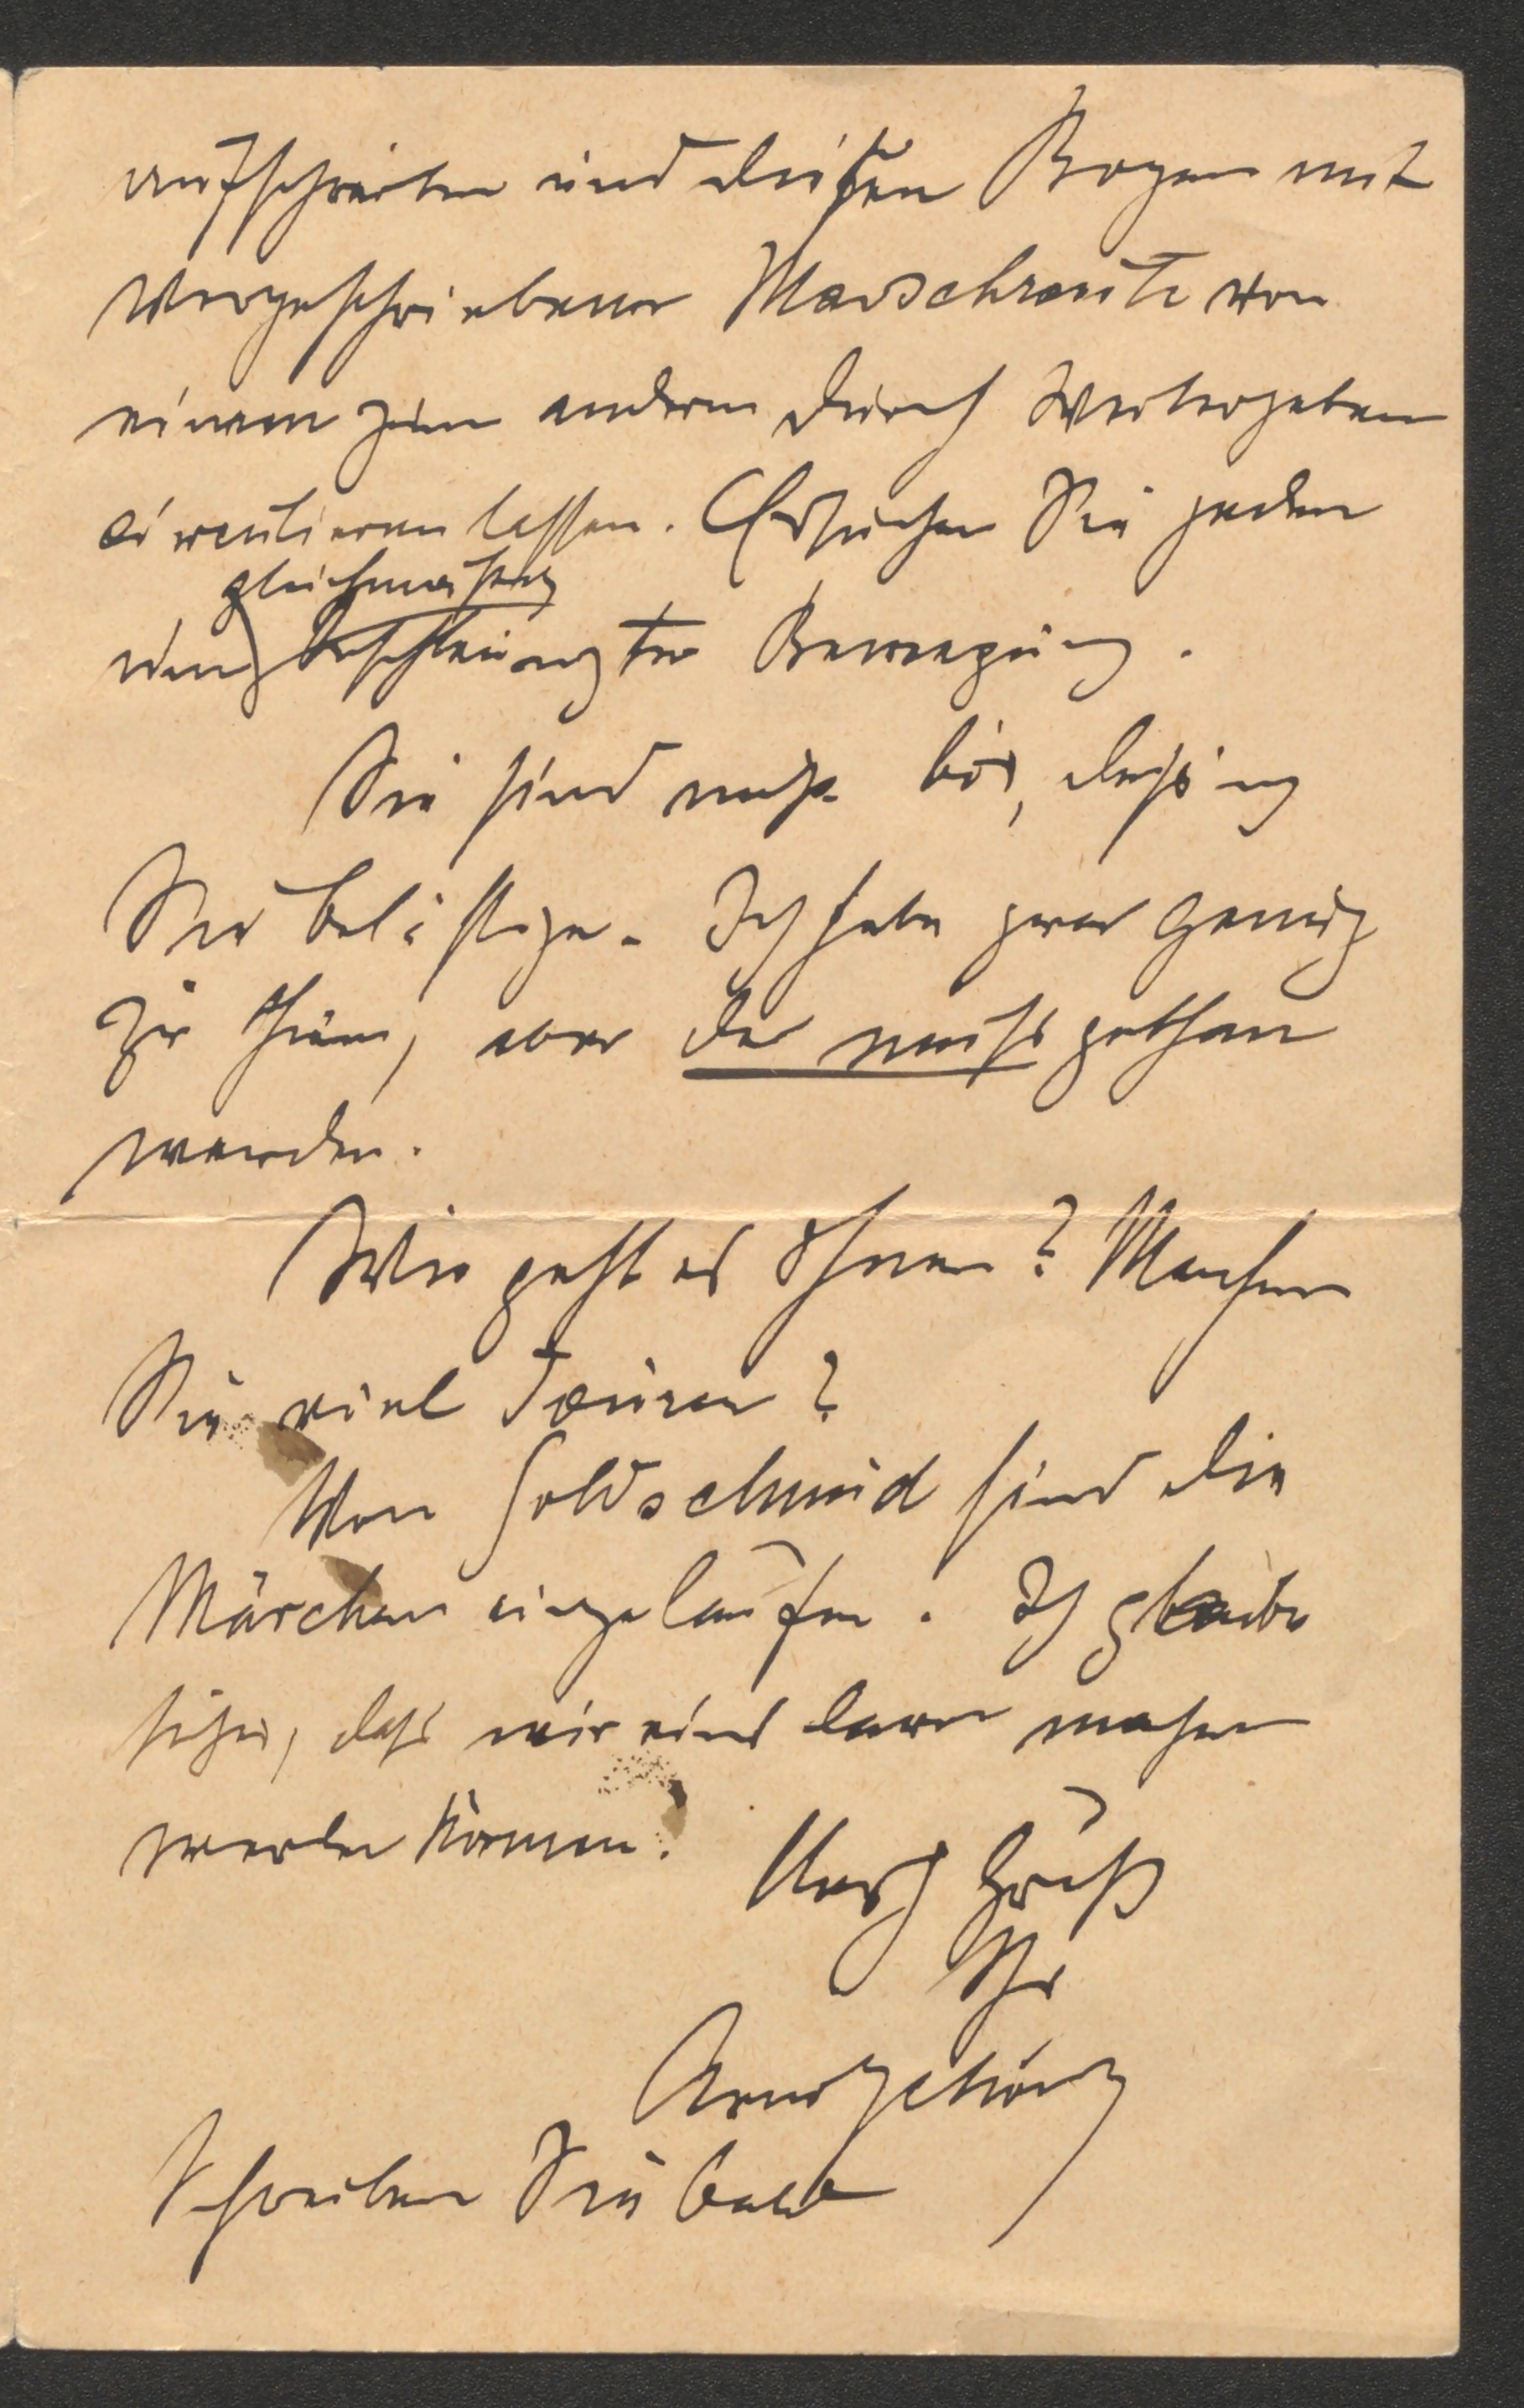 aufschreiben und diesen Bogen mit
vorgeschriebener Marschroute von
einem zum andern durch Weitergeben
circulieren lassen. Ersuchen Sie jeden
gleichmäßig
um beschleunigter Bewegung.
Sie sind nicht bös, dass ich
Sie belästige. Ich habe zwar genug
zu thun, aber das muss gethan
werden.
Wie geht es Ihnen? Machen
Sie viel Touren?
Von Goldschmid sind die
Märchen eingelaufen. Ich glaube
sicher, dass wir eins davon machen
werden können.
Herzl Gruß
Ihr
Arnold Schönbg
Schreiben Sie bald